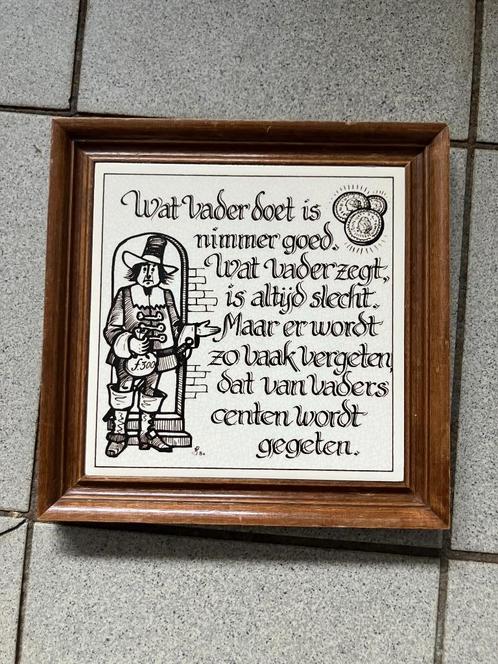 Wat vader doet is
nimmer goed.
Wat vader zegt,
is altijd slecht.
Maar er wordt
zo vaak vergeten,
dat van vaders
centen wordt
gegeten.
f 300